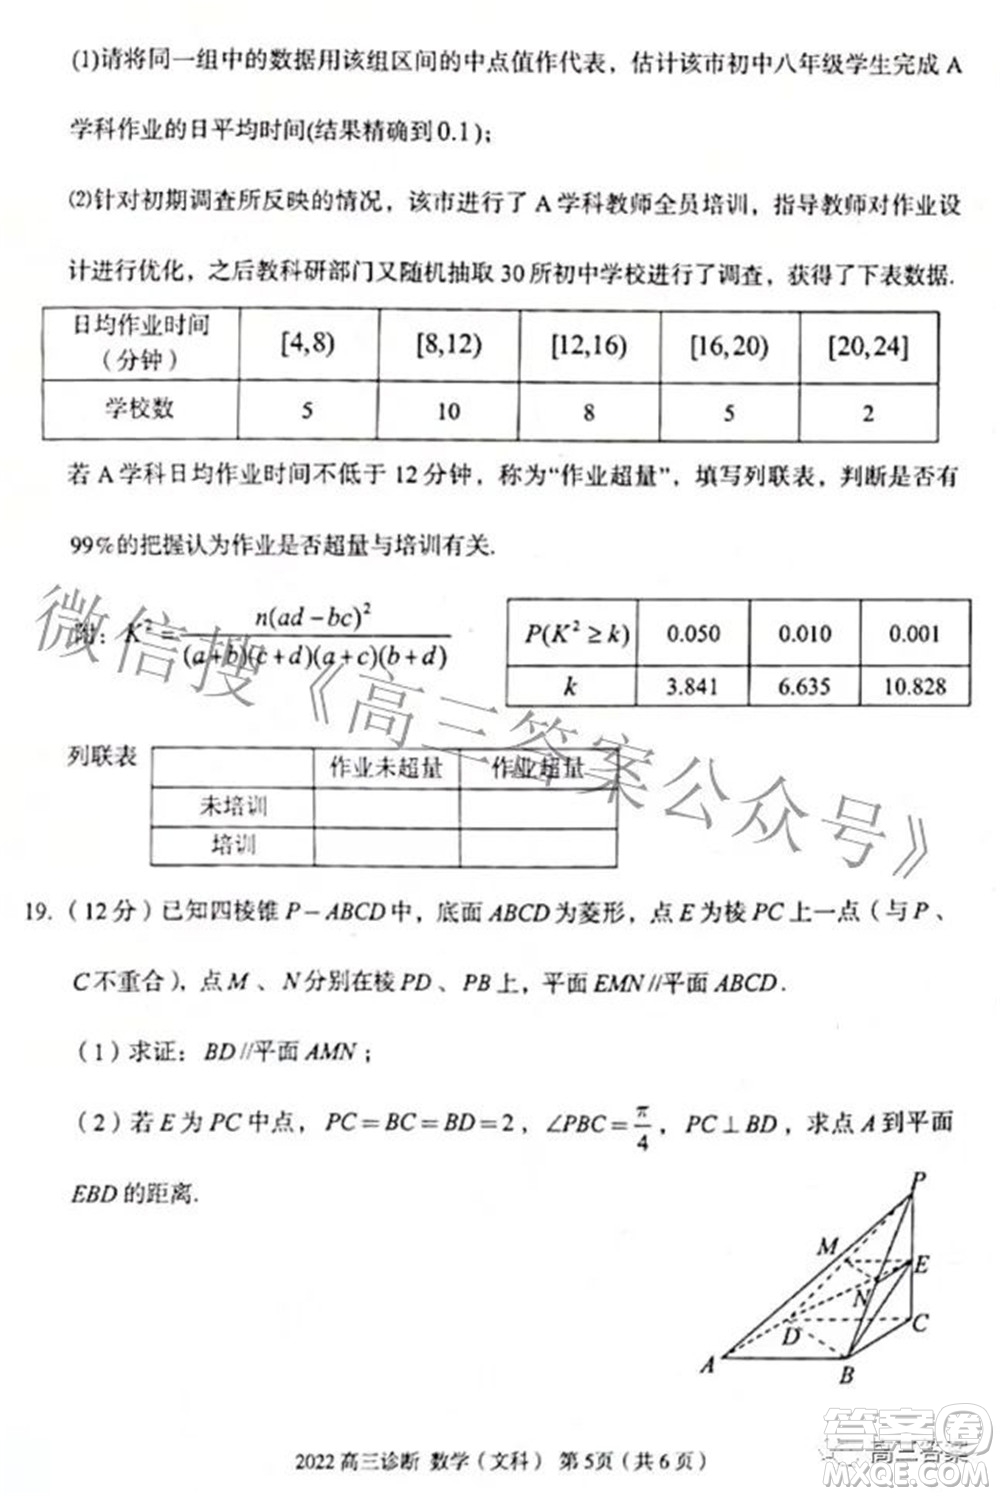 (1)请将同一组中的数据用该组区间的中点值作代表，估计该市初中八年级学生完成 A
学科作业的日平均时间(结果精确到0.1)；
(2)针对初期调查所反映的情况，该市进行了 A 学科教师全员培训，指导教师对作业设
计进行优化，之后教科研部门又随机抽取 30 所初中学校进行了调查，获得了下表数据.
日均作业时间（分钟） [4,8) [8,12) [12,16) [16,20) [20,24]
学校数 5 10 8 5 2
若 A 学科日均作业时间不低于 12 分钟，称为“作业超量”，填写列联表，判断是否有
99%的把握认为作业是否超量与培训有关.
附：K² = n(ad−bc)² / (a+b)(c+d)(a+c)(b+d)
P(K² ≥ k) 0.050 0.010 0.001
k 3.841 6.635 10.828
列联表
作业未超量 作业超量
未培训
培训
19.（12 分）已知四棱锥 P－ABCD 中，底面 ABCD 为菱形，点 E 为棱 PC 上一点（与 P、
C 不重合），点 M 、N 分别在棱 PD、PB 上，平面 EMN //平面 ABCD．
（1）求证：BD //平面 AMN；
（2）若 E 为 PC 中点，PC = BC = BD = 2，∠PBC = π/4，PC ⊥ BD，求点 A 到平面
EBD 的距离.
P
M
E
N
D
C
A
B
2022 高三诊断 数学（文科） 第 5页（共 6 页）
微信搜《高三答案公众号》
高三答案
答案圈
MXQE.COM